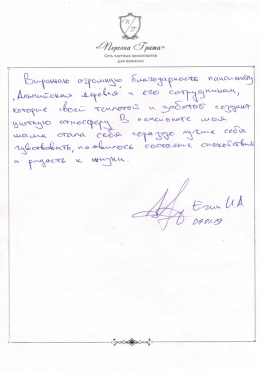 «Персона Грата»
Сеть частных пансионатов
для пожилых
Выражаю огромную благодарность пансионату
"Альпийская деревня" и его сотрудникам,
которые своей теплотой и заботой создают
уютную атмосферу. В пансионате моя
мама стала себя гораздо лучше себя
чувствовать, появилось состояние спокойствия
и радость к жизни.
И.А.